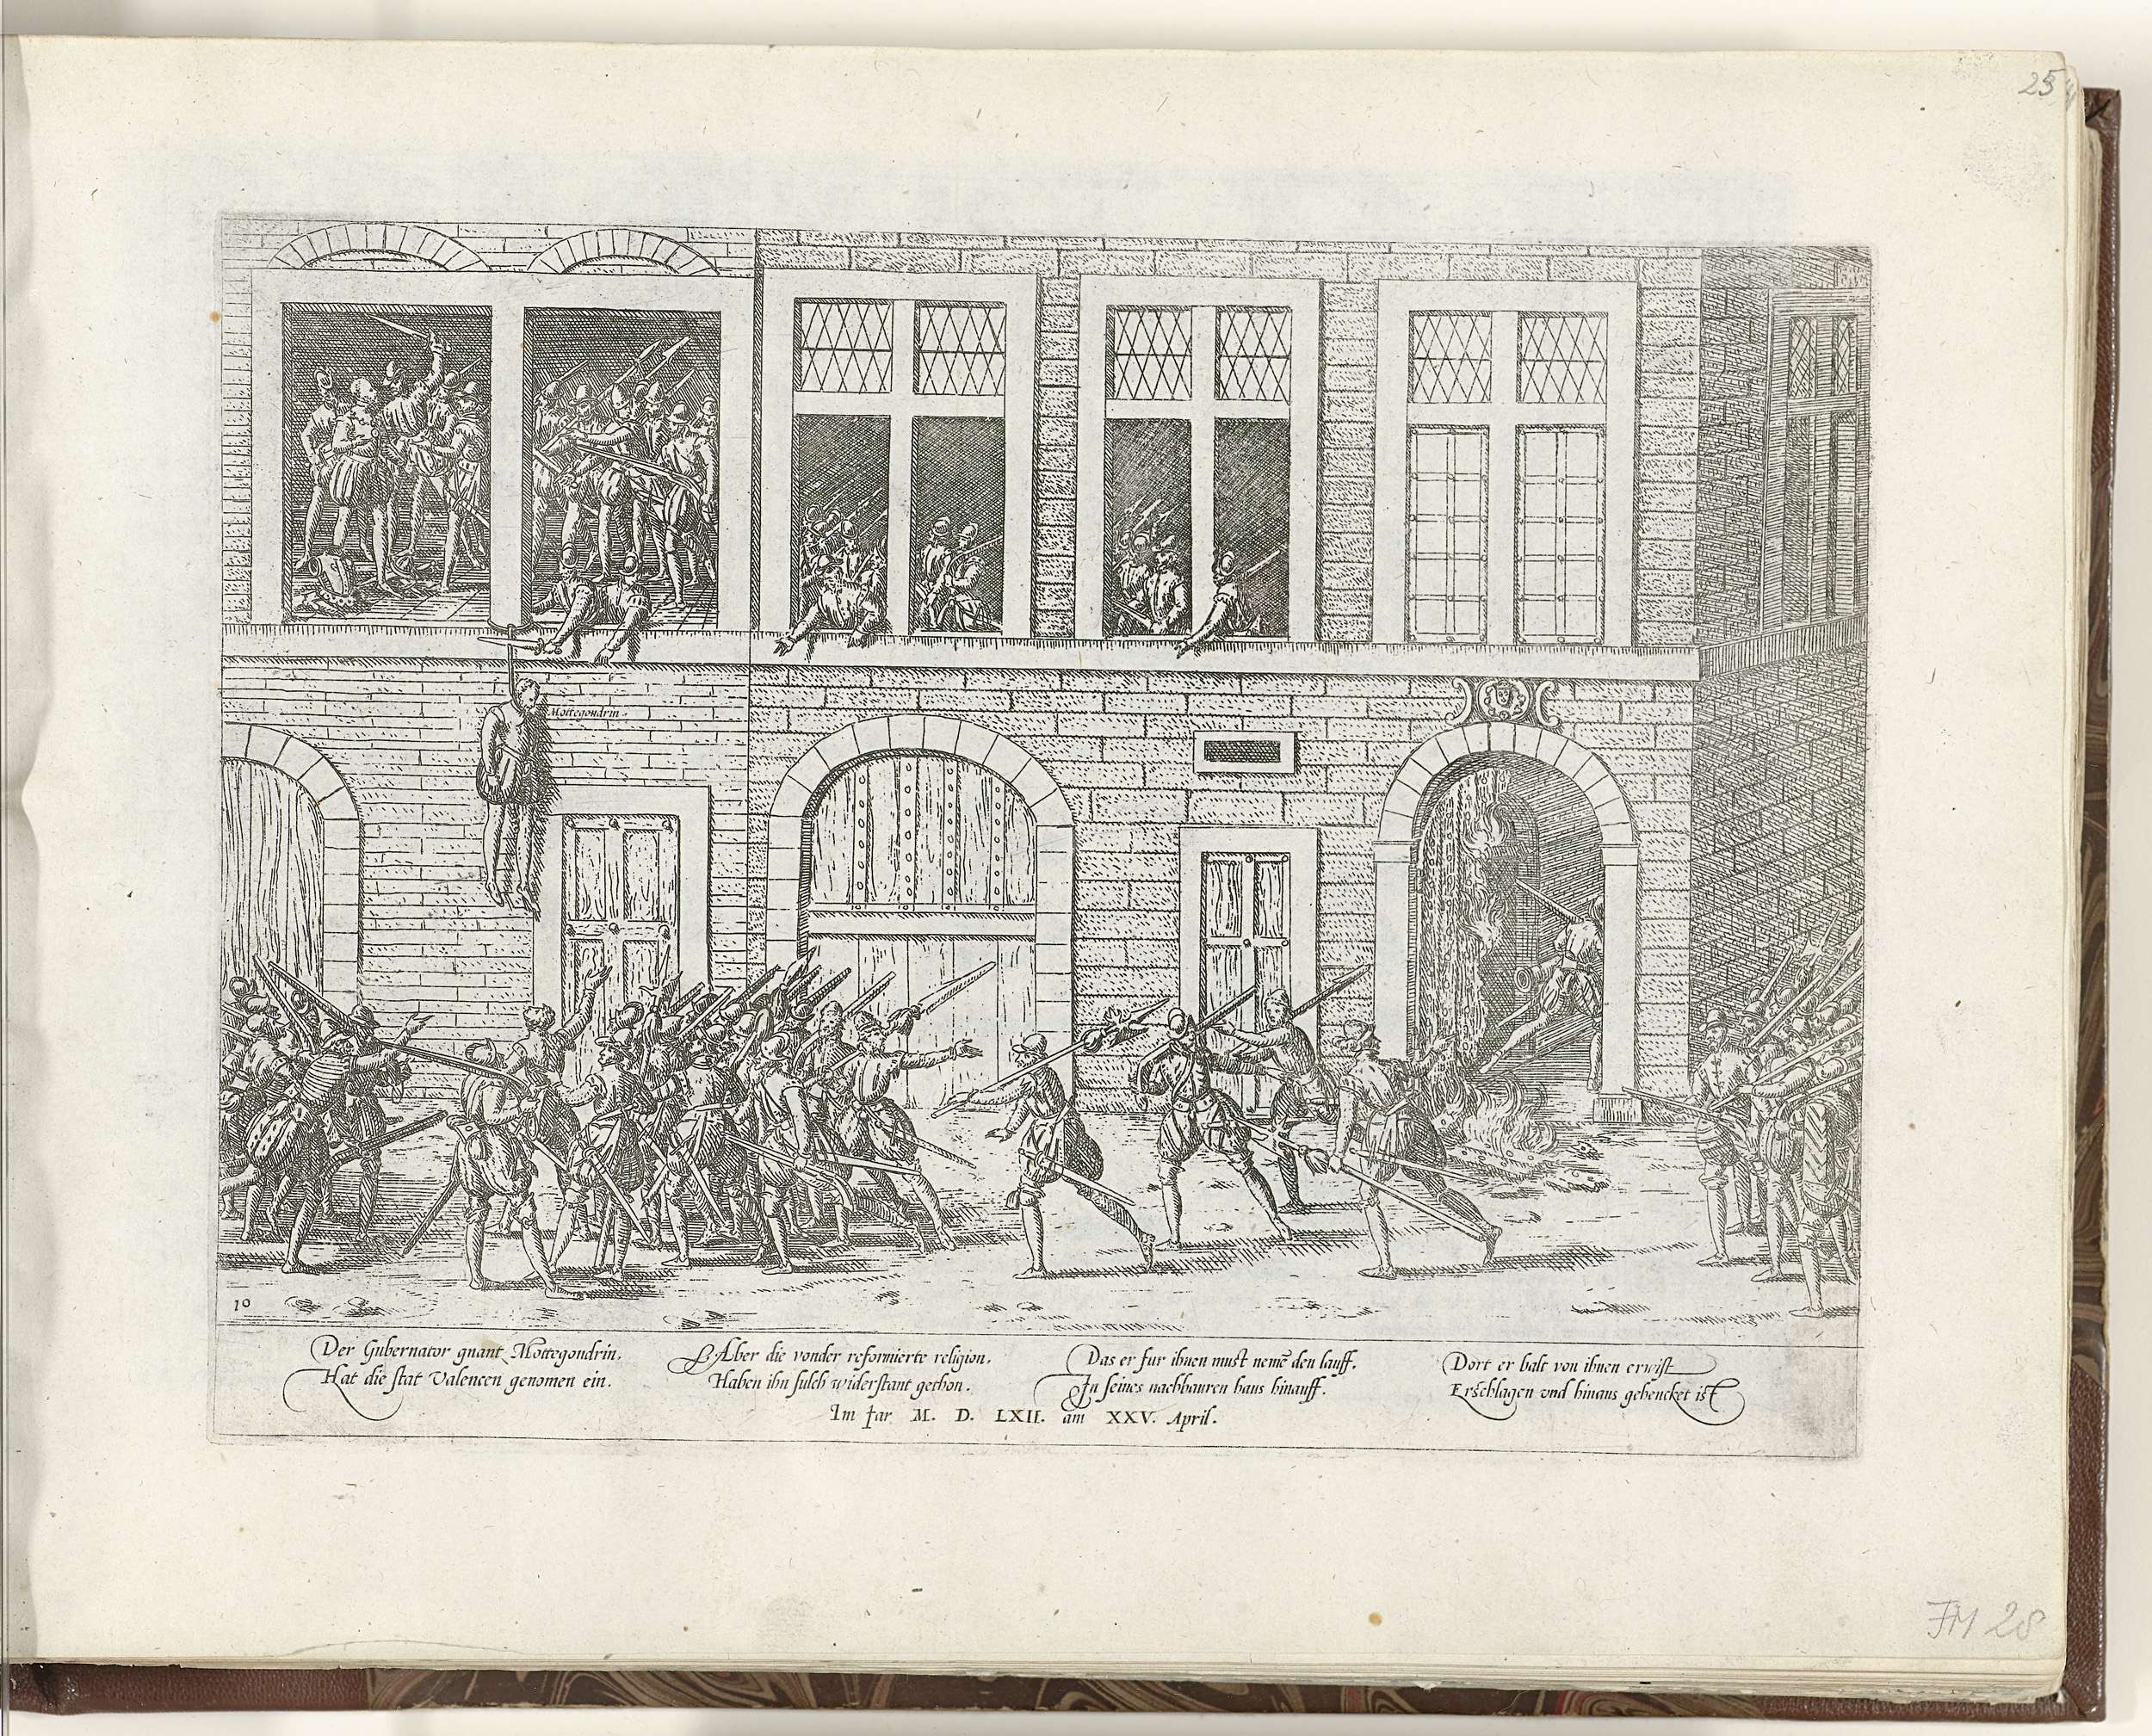 25
Mottegondrin.
10
Der Gubernator gnant Mottegondrin.
Hat die stat Valencen genomen ein.
Aber die vonder reformierte religion.
Haben ihn sulch widerstant gethon.
Das er fur ihnen must nemē den lauff.
In seines nachbauren haus hinauff.
Dort er balt von ihnen erwist
Erschlagen vnd hinaus gehencket ist
Im Jar M. D. LXII. am XXV. April.
FM 28